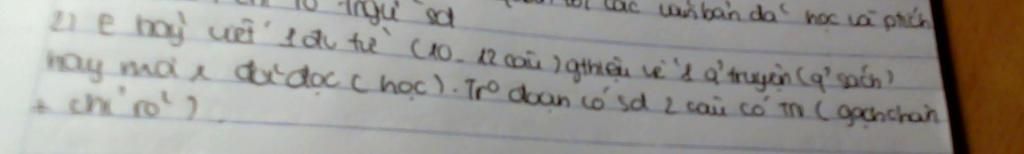 ngữ sd các văn bản đã học và phích
2) e hãy viết 1 đv từ (10-12 câu) gthiệu về 1 q' truyện (q' sách)
hay mà x đã đọc (học). Tr° đoạn có sd 2 câu có TN (gạch chân
+ chỉ rõ)